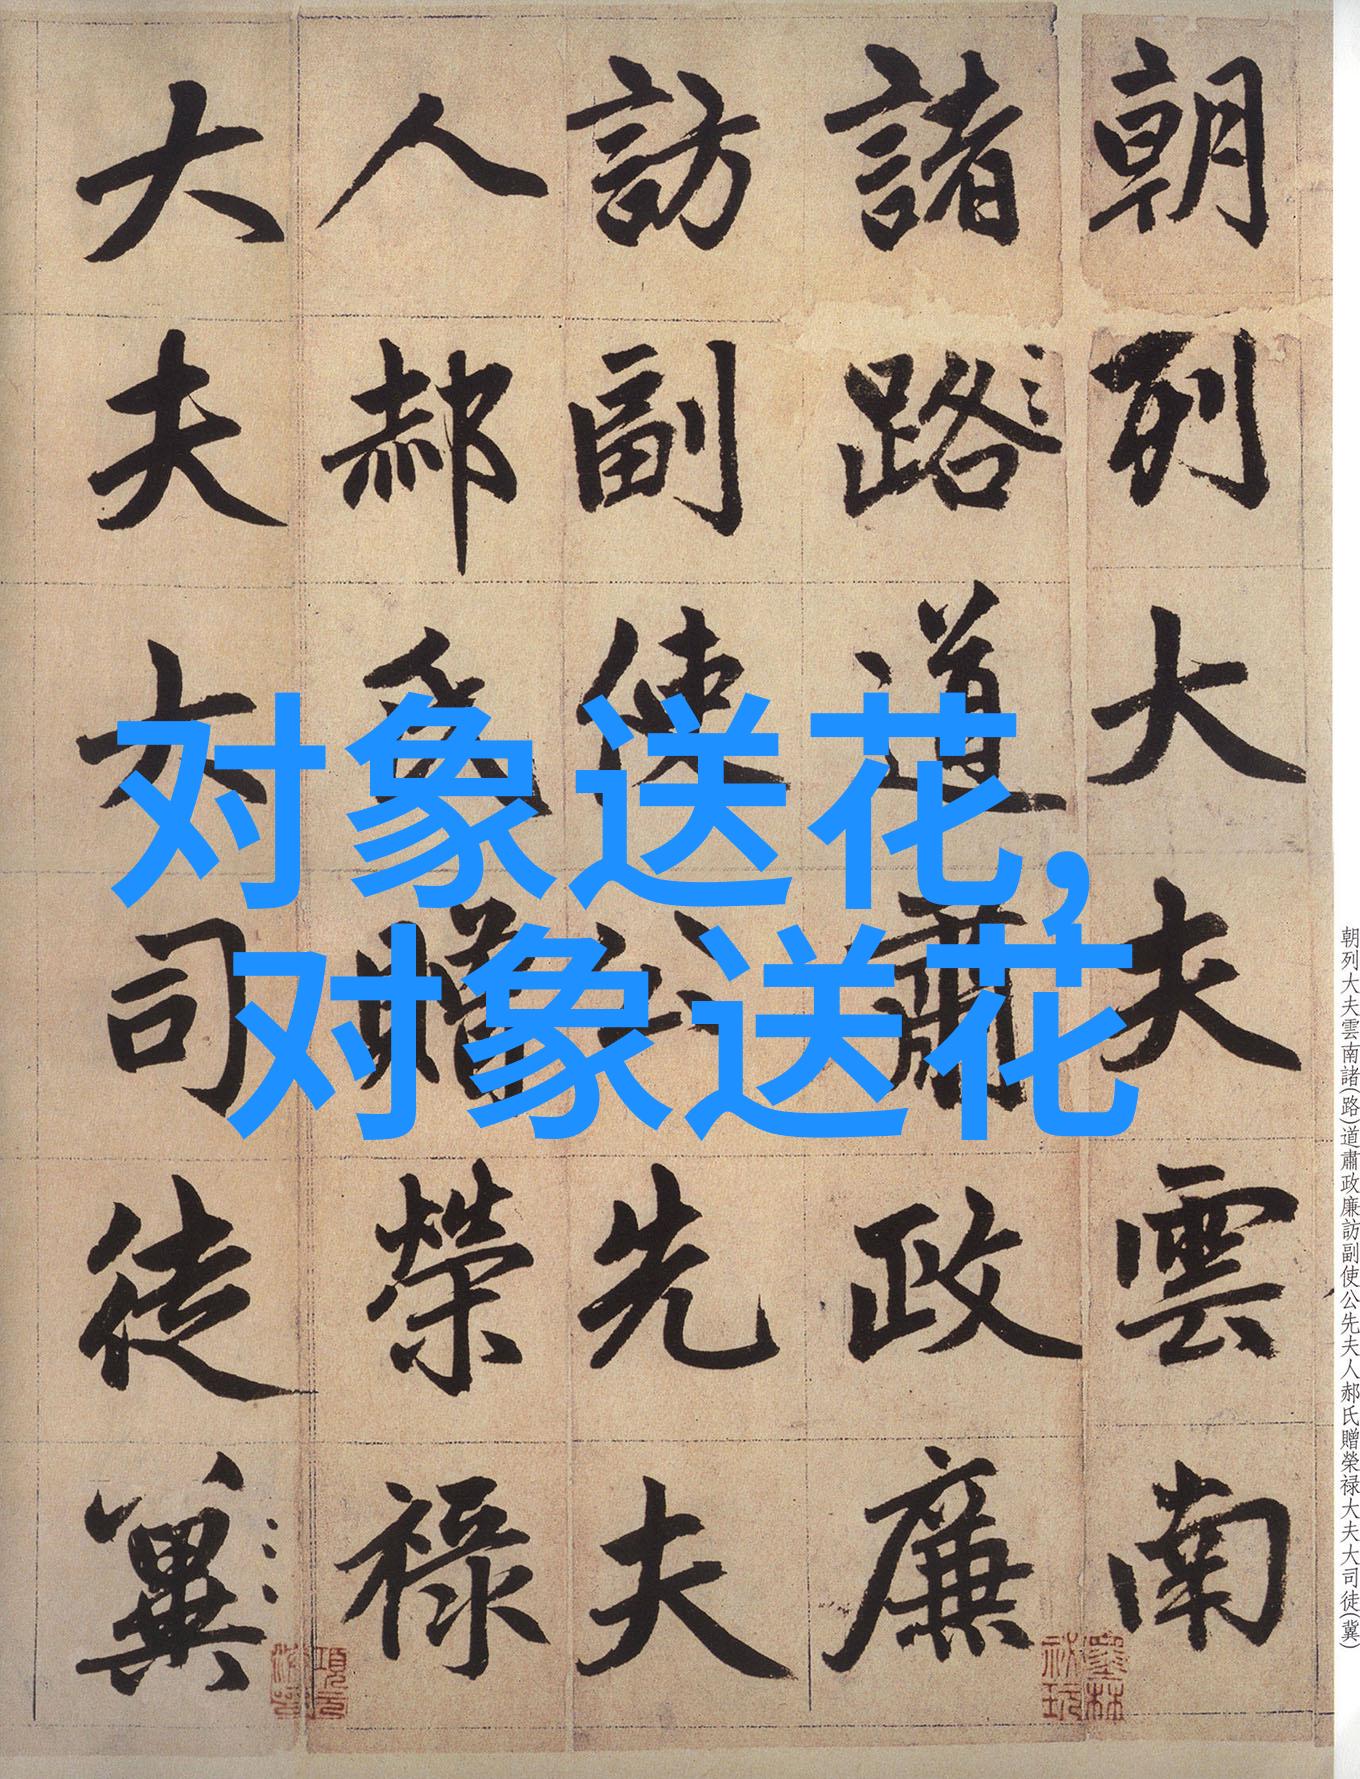 朝列大夫雲南
諸路道肅政廉
訪副使公先夫
人郝氏贈榮禄
大夫大司徒冀
对象送花,
对象送花
朝列大夫雲南諸(路)道肅政廉訪副使公先夫人郝氏贈榮禄大夫大司徒(冀)